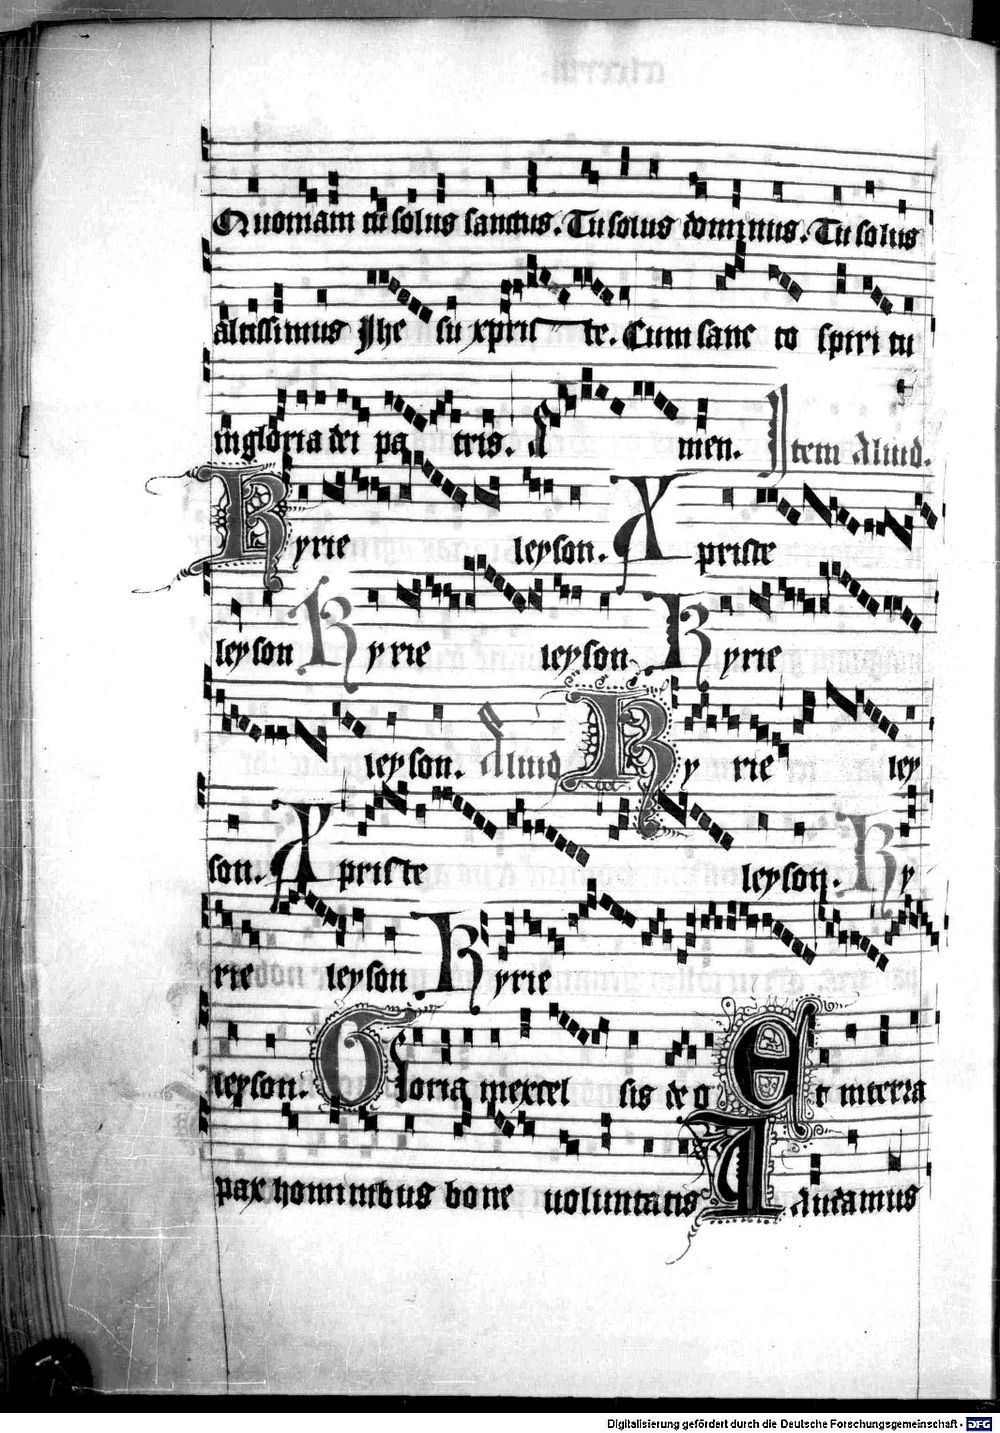 Quoniam tu solus sanctus. Tu solus dominus. Tu solus
altissimus Jhe su xpris te. Cum sanc to spiri tu
in gloria dei pa tris. A men. Item Aliud.
Kyrie leyson. Xpriste
leyson Kyrie leyson Kyrie
leyson. Aliud Ky rie ley
son. Xpriste leyson. Ky
rie leyson Kyrie
leyson. Gloria in excel sis de o Et in terra
pax hominibus bone uoluntatis Laudamus
Digitalisierung gefördert durch die Deutsche Forschungsgemeinschaft - DFG